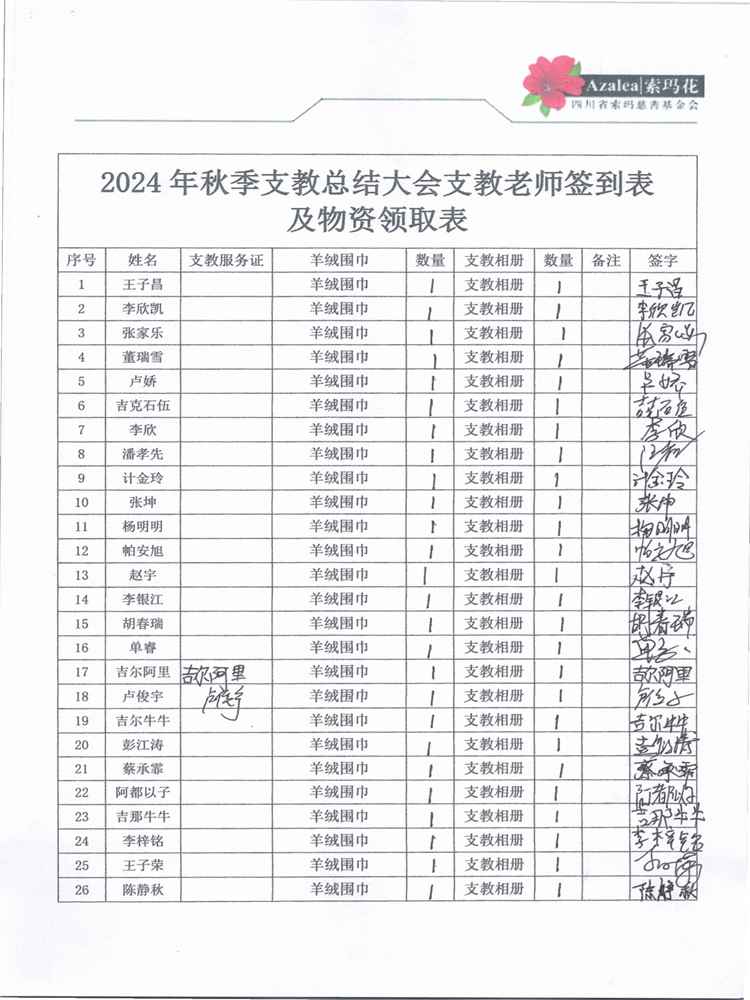 Azalea|索玛花
四川省索玛慈善基金会
2024年秋季支教总结大会支教老师签到表
及物资领取表
序号 姓名 支教服务证 羊绒围巾 数量 支教相册 数量 备注 签字
1 王子昌 羊绒围巾 1 支教相册 1 王子昌
2 李欣凯 羊绒围巾 1 支教相册 1 李欣凯
3 张家乐 羊绒围巾 1 支教相册 1
4 董瑞雪 羊绒围巾 1 支教相册 1 董瑞雪
5 卢娇 羊绒围巾 1 支教相册 1 卢娇
6 吉克石伍 羊绒围巾 1 支教相册 1
7 李欣 羊绒围巾 1 支教相册 1 李欣
8 潘孝先 羊绒围巾 1 支教相册 1
9 计金玲 羊绒围巾 1 支教相册 1 计金玲
10 张坤 羊绒围巾 1 支教相册 1 张坤
11 杨明明 羊绒围巾 1 支教相册 1 杨明明
12 帕安旭 羊绒围巾 1 支教相册 1 帕安旭
13 赵宇 羊绒围巾 1 支教相册 1 赵宇
14 李银江 羊绒围巾 1 支教相册 1 李银江
15 胡春瑞 羊绒围巾 1 支教相册 1 胡春瑞
16 单睿 羊绒围巾 1 支教相册 1
17 吉尔阿里 吉尔阿里 羊绒围巾 1 支教相册 1 吉尔阿里
18 卢俊宇 卢俊宇 羊绒围巾 1 支教相册 1
19 吉尔牛牛 羊绒围巾 1 支教相册 1 吉尔牛牛
20 彭江涛 羊绒围巾 1 支教相册 1 彭江涛
21 蔡承霏 羊绒围巾 1 支教相册 1 蔡承霏
22 阿都以子 羊绒围巾 1 支教相册 1 阿都以子
23 吉那牛牛 羊绒围巾 1 支教相册 1 吉那牛牛
24 李梓铭 羊绒围巾 1 支教相册 1 李梓铭
25 王子荣 羊绒围巾 1 支教相册 1
26 陈静秋 羊绒围巾 1 支教相册 1 陈静秋